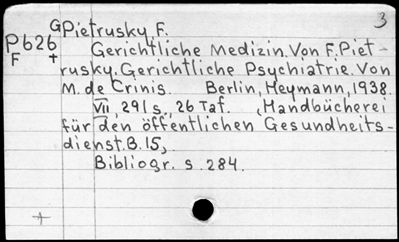 3
GPietrusky, F.
P626 Gerichtliche Medizin. Von F. Piet-
F † rusky. Gerichtliche Psychiatrie. Von
M. de Crinis. Berlin, Heymann, 1938.
VII, 291 s., 26 Taf. (Handbücherei
für den öffentlichen Gesundheits-
dienst. B. 15)
Bibliogr. s. 284.
+